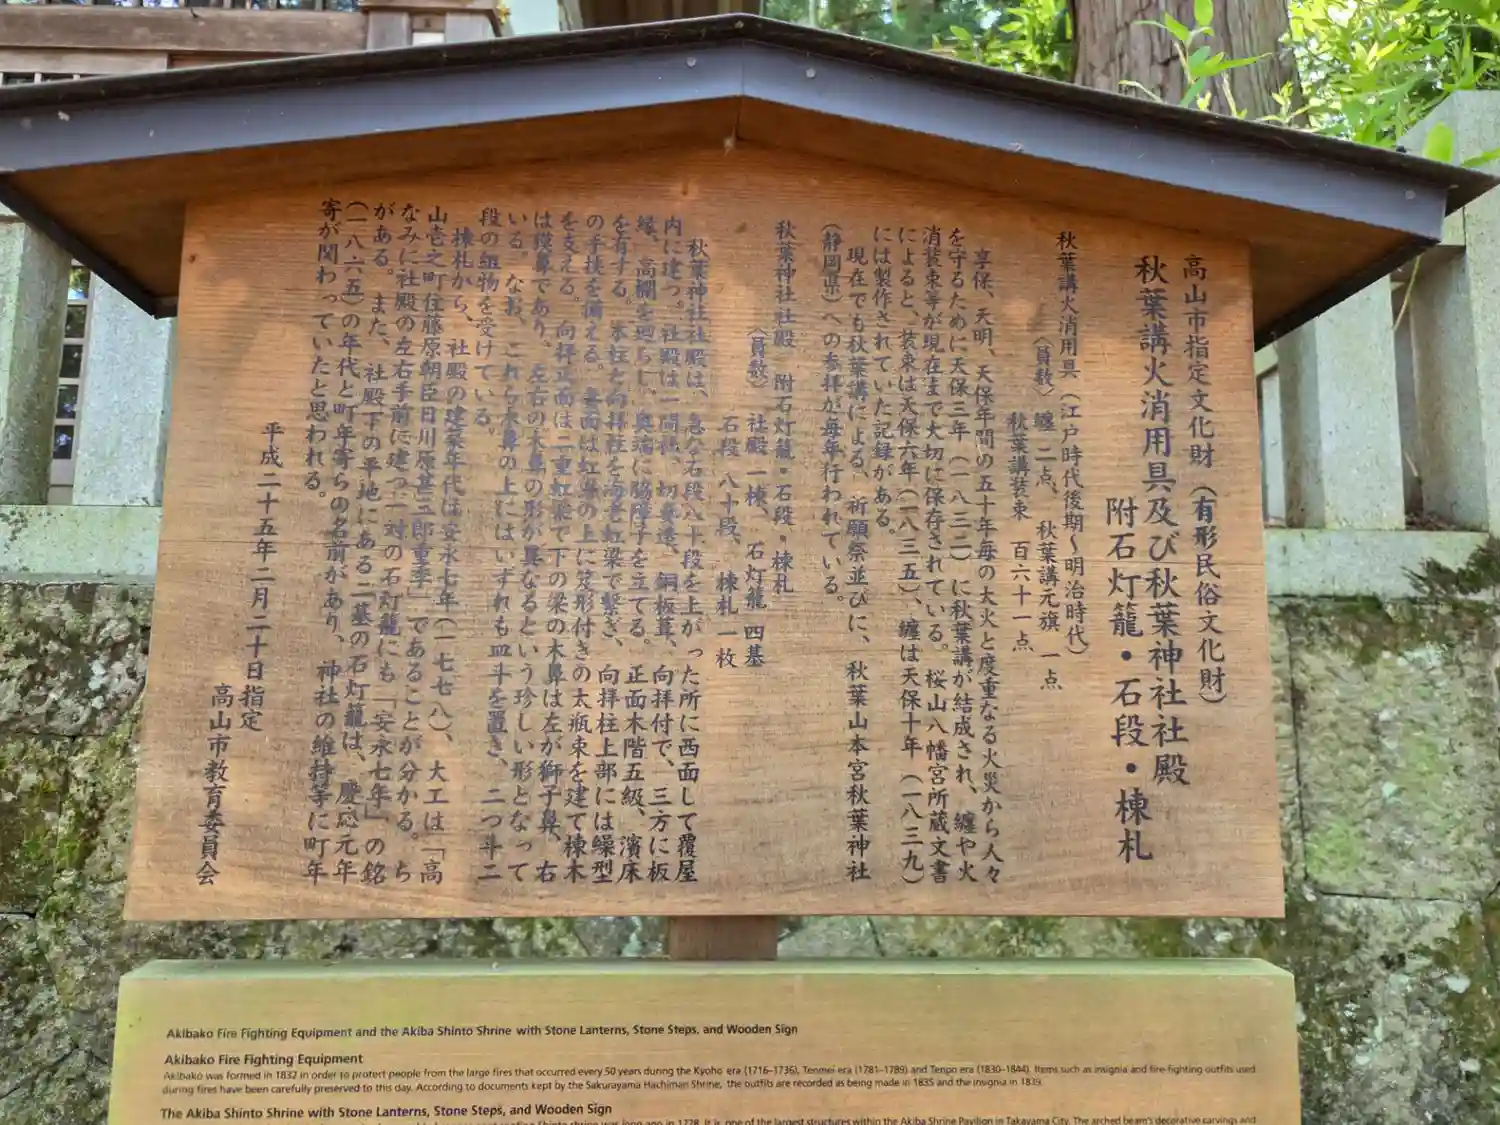 高山市指定文化財（有形民俗文化財）
秋葉講火消用具及び秋葉神社社殿
附石灯籠・石段・棟札
秋葉講火消用具（江戸時代後期～明治時代）
〈員数〉 纏 二点、 秋葉講元旗 一点
秋葉講装束 百六十一点
享保、天明、天保年間の五十年毎の大火と度重なる火災から人々
を守るために天保三年（一八三二）に秋葉講が結成され、纏や火
消装束等が現在まで大切に保存されている。桜山八幡宮所蔵文書
によると、装束は天保六年（一八三五）、纏は天保十年（一八三九）
には製作されていた記録がある。
現在でも秋葉講による、祈願祭並びに、秋葉山本宮秋葉神社
（静岡県）への参拝が毎年行われている。
秋葉神社社殿 附石灯籠・石段・棟札
〈員数〉 社殿 一棟、 石灯籠 四基
石段 八十段、 棟札 一枚
秋葉神社社殿は、急な石段八十段を上がった所に西面して覆屋
内に建つ。社殿は一間社、切妻造、銅板葺、向拝付で、三方に板
縁、高欄を廻らし、奥端に脇障子を立てる。正面木階五級、濱床
を有する。本柱と向拝柱を海老虹梁で繋ぎ、向拝柱上部には繰型
の手挟を備える。妻面は虹梁の上に笈形付きの太瓶束を建て棟木
を支える。向拝正面は二重虹梁で下の梁の木鼻は左が獅子鼻、右
は獏鼻であり、左右の木鼻の形が異なるという珍しい形となって
いる。なお、これら木鼻の上にはいずれも皿斗を置き、二つ斗二
段の組物を受けている。
棟札から、社殿の建築年代は安永七年（一七七八）、大工は「高
山壱之町住藤原朝臣日川原甚三郎重季」であることが分かる。ち
なみに社殿の左右手前に建つ一対の石灯籠にも「安永七年」の銘
がある。また、社殿下の平地にある二基の石灯籠は、慶応元年
（一八六五）の年代と町年寄らの名前があり、神社の維持等に町年
寄が関わっていたと思われる。
平成二十五年二月二十日指定
高山市教育委員会
Akibako Fire Fighting Equipment and the Akiba Shinto Shrine with Stone Lanterns, Stone Steps, and Wooden Sign
Akibako Fire Fighting Equipment
Akibako was formed in 1832 in order to protect people from the large fires that occurred every 50 years during the Kyoho era (1716–1736), Tenmei era (1781–1789) and Tenpo era (1830–1844). Items such as insignia and fire-fighting outfits used
during fires have been carefully preserved to this day. According to documents kept by the Sakurayama Hachiman Shrine, the outfits are recorded as being made in 1835 and the insignia in 1839.
The Akiba Shinto Shrine with Stone Lanterns, Stone Steps, and Wooden Sign
Shinto shrine was long ago in 1778. It is one of the largest structures within the Akiba Shrine Pavilion in Takayama City. The arched beam's decorative carvings and